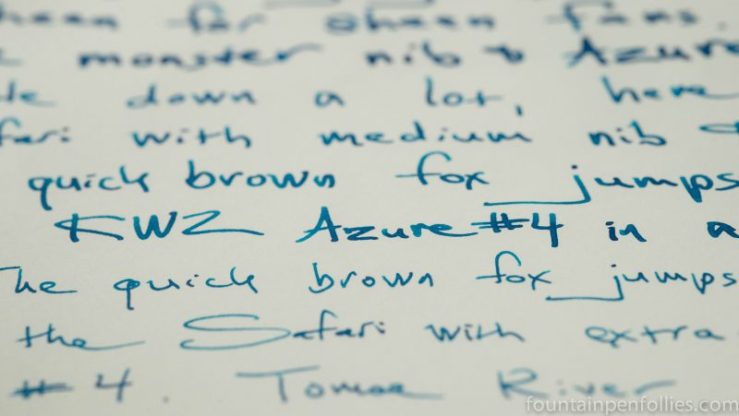 sheen for sheen fans.
monster nib & Azure
down a lot, here
Safari with medium nib
quick brown fox jumps
KWZ Azure #4 in a
The quick brown fox jumps
the Safari with extra
#4. Tomoe River
fountainpenfollies.com